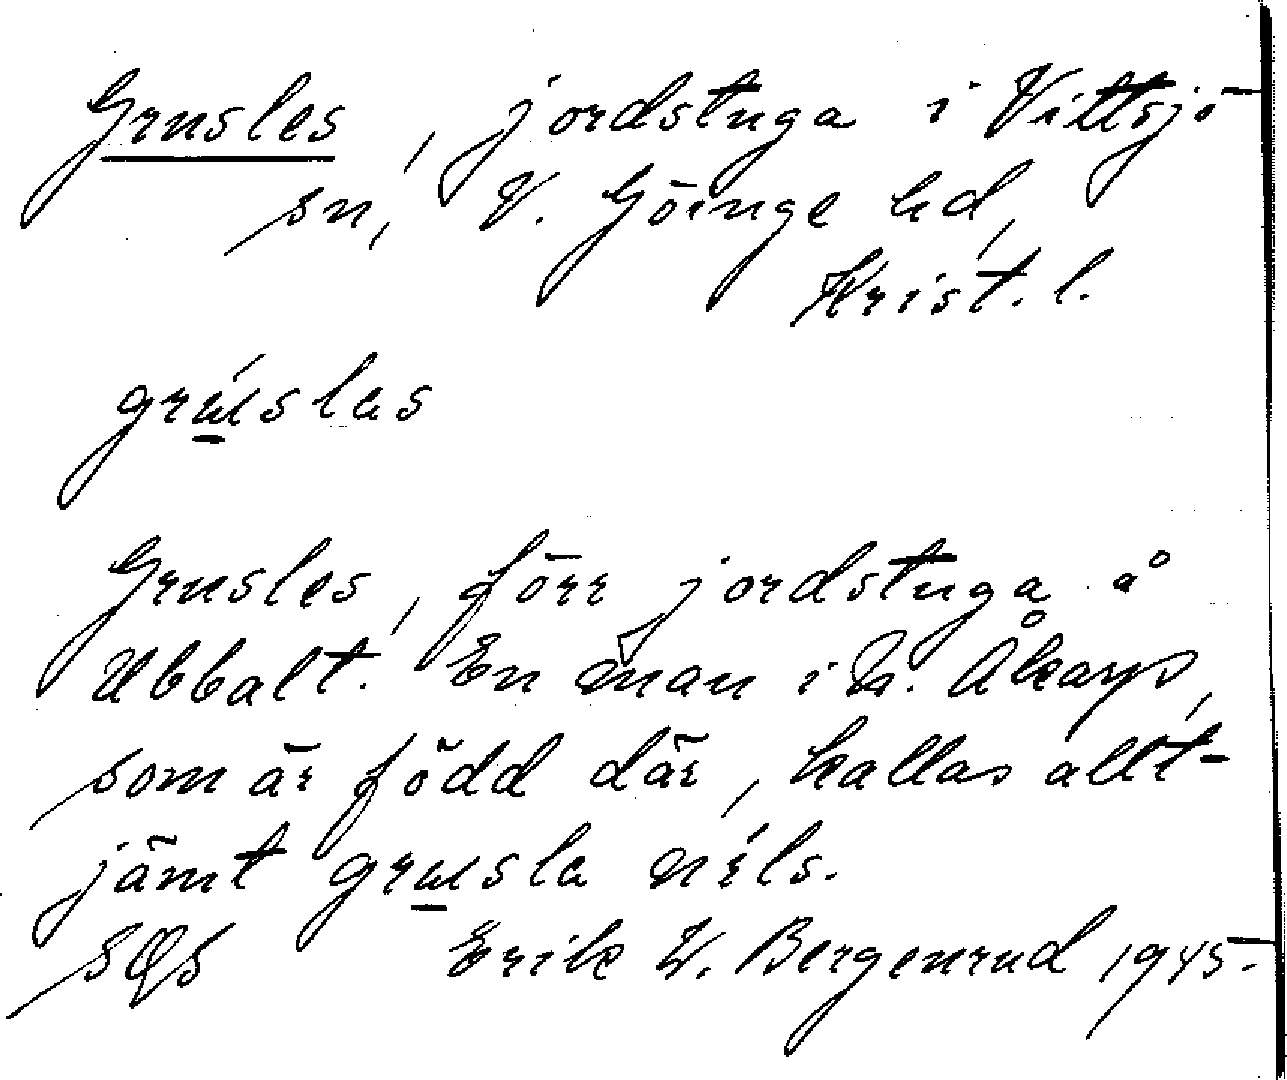 Grusles, jordstuga i Vittsjö
sn, V. Göinge hd,
Krist. l.
Grusles, förr jordstuga å
Ubbalt. En man i N. Åkarp,
som är född där, kallas allt-
jämt grusla nils.
Erik W. Bergenrud 1945.